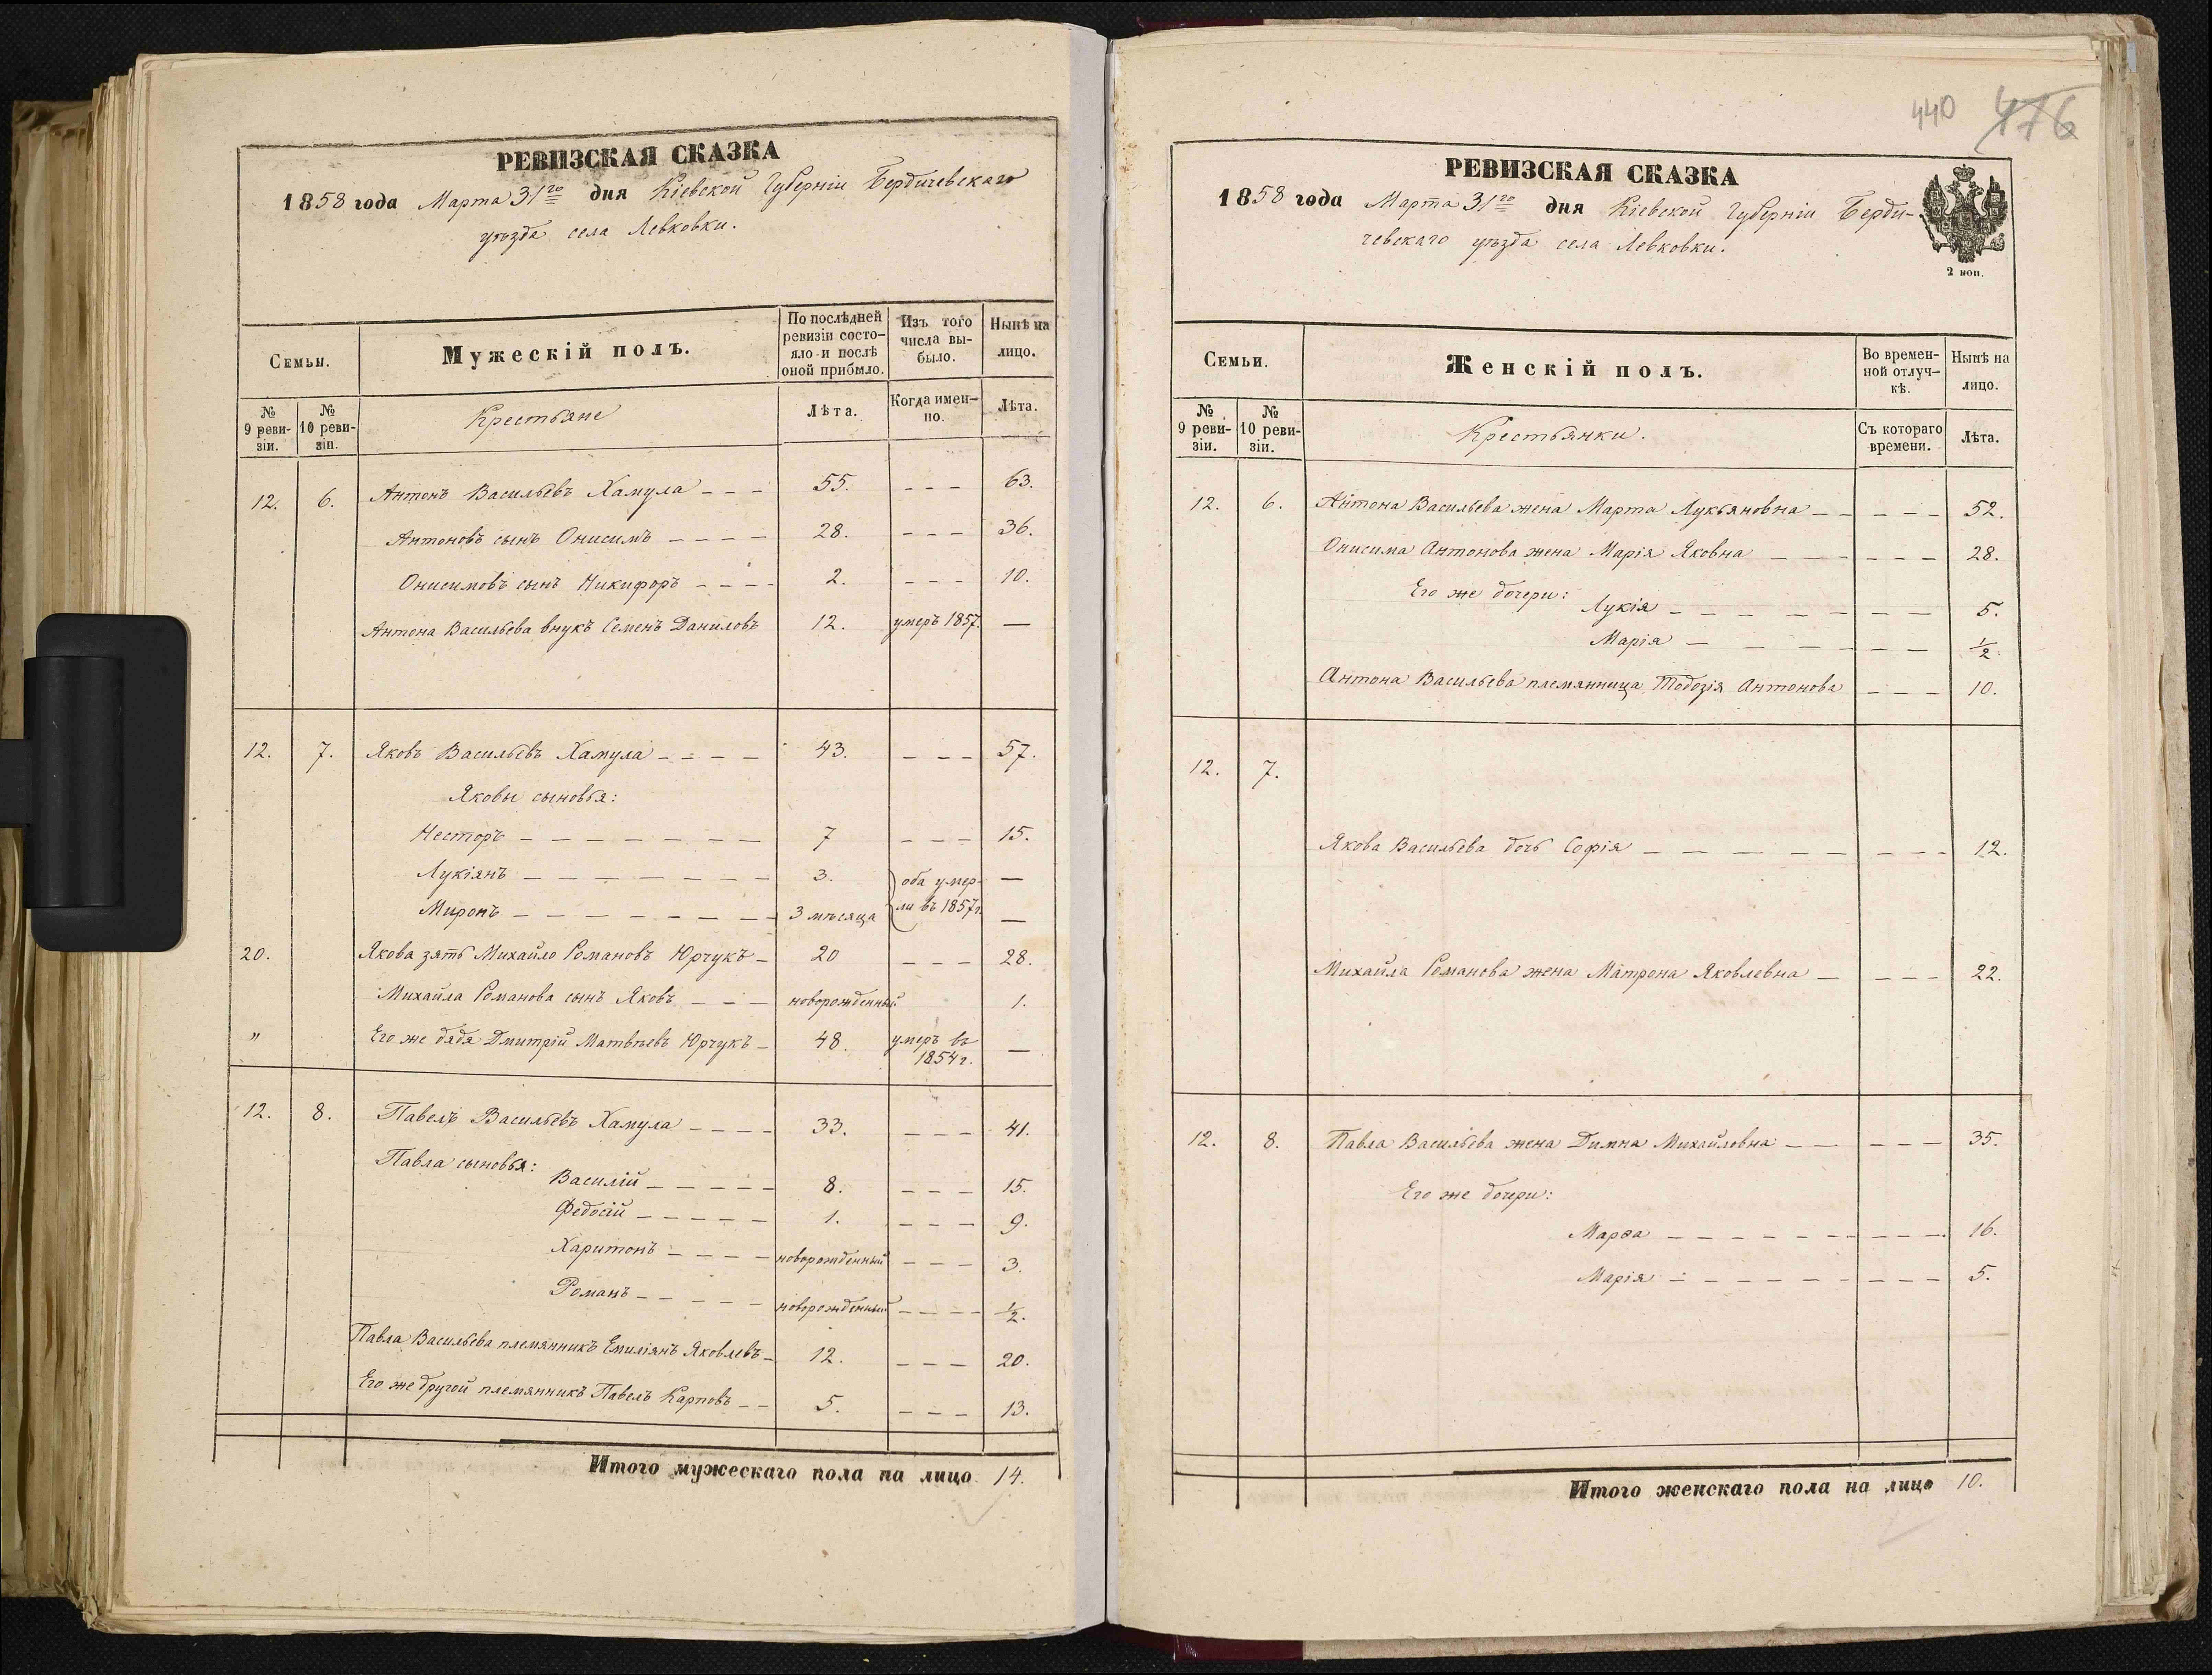 РЕВИЗСКАЯ СКАЗКА
1858 года Марта 31го дня Кіевской Губерніи Бердичевскаго
уѣзда села Левковки.
Семьи.
Мужескій полъ.
По послѣдней ревизіи состо-яло и послѣ оной прибыло.
Изъ того числа вы-было.
Нынѣ на лицо.
№ 9 реви-зіи.
№ 10 реви-зіи.
Крестьяне
Лѣта.
Когда имен-но.
Лѣта.
12. 6. Антонъ Васильевъ Хамула - - - 55. - - - 63.
Антоновъ сынъ Онисимъ - - - - 28. - - - 36.
Онисимовъ сынъ Никифоръ - - - - 2. - - - 10.
Антона Васильева внукъ Семенъ Даниловъ 12. умеръ 1857. —
12. 7. Яковъ Васильевъ Хамула - - - - 43. - - - 57.
Яковы сыновья:
Несторъ - - - - - - - 7 - - - 15.
Лукіянъ - - - - - - - 3. оба умер- —
Миронъ - - - - - - - 3 мѣсяца ли въ 1857г. —
20. Якова зять Михайло Романовъ Юрчукъ - 20 - - - 28.
Михайла Романова сынъ Яковъ - - - новорожденный 1.
" Его же дядя Дмитрій Матвѣевъ Юрчукъ - 48. умеръ въ —
1854 г.
12. 8. Павелъ Васильевъ Хамула - - - - 33. - - - 41.
Павла сыновья:
Василій - - - - - 8. - - - 15.
Федосій - - - - - 1. - - - 9.
Харитонъ - - - - новорожденный - - - 3.
Романъ - - - - - новорожденный - - - - 1/2.
Павла Васильева племянникъ Емиліянъ Яковлевъ - 12. - - - 20.
Его же другой племянникъ Павелъ Карповъ - - 5. - - - 13.
Итого мужескаго пола на лицо 14.
440 476
РЕВИЗСКАЯ СКАЗКА
1858 года Марта 31го дня Кіевской Губерніи Берди-
чевскаго уѣзда села Левковки.
2 коп.
Семьи.
Женскій полъ.
Во времен-ной отлуч-кѣ.
Нынѣ на лицо.
№ 9 реви-зіи.
№ 10 реви-зіи.
Крестьянки.
Съ котораго времени.
Лѣта.
12. 6. Антона Васильева жена Марта Лукьяновна - - - - - 52.
Онисима Антонова жена Марія Яковна - - - - - - 28.
Его же дочери:
Лукія - - - - - - - - 5.
Марія - - - - - - - - 1/2.
Антона Васильева племянница Тодозія Антонова - - - 10.
12. 7.
Якова Васильева дочь Софія - - - - - - - - - 12.
Михайла Романова жена Матрона Яковлевна - - - - 22.
12. 8. Павла Васильева жена Димна Михайловна - - - - - 35.
Его же дочери:
Марѳа - - - - - - - - - - 16.
Марія - - - - - - - - - - 5.
Итого женскаго пола на лицо 10.